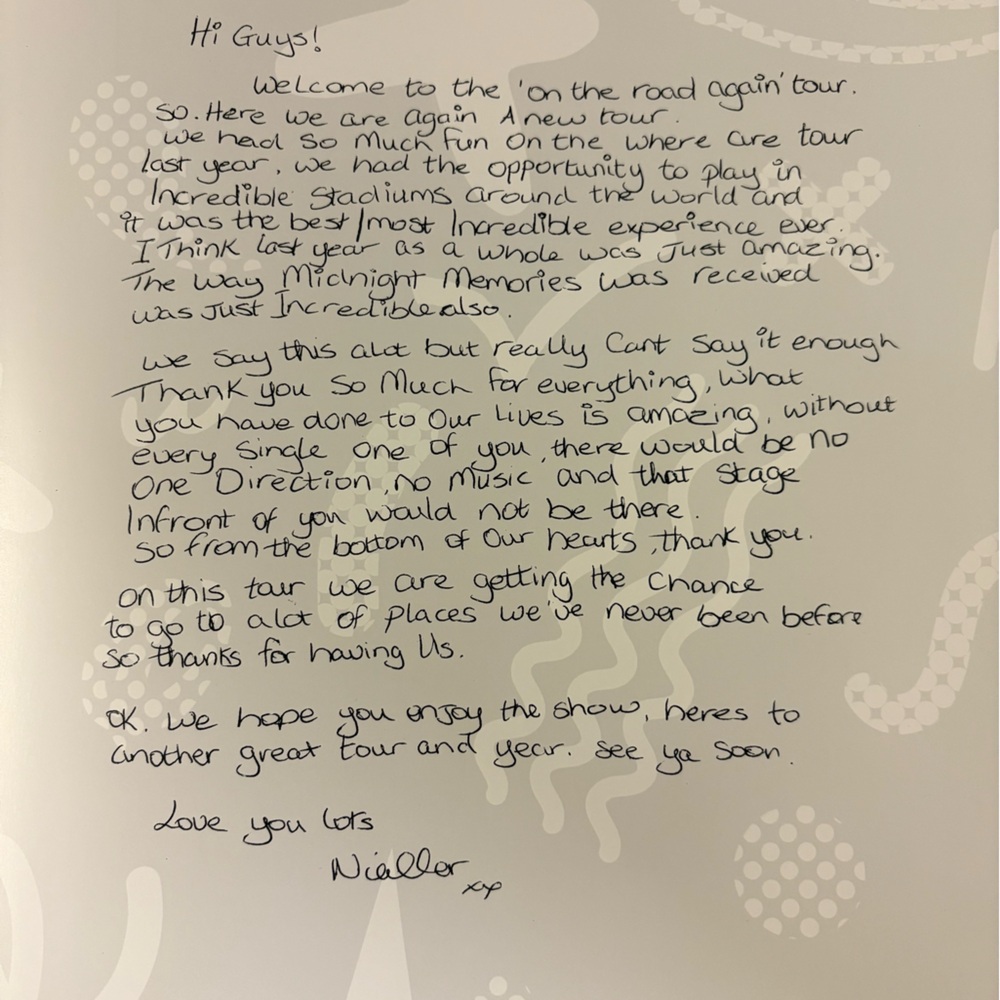 Hi Guys!
Welcome to the 'on the road again' tour.
So. Here we are again A new tour.
we had so Much fun on the where are tour
last year, we had the opportunity to play in
Incredible Stadiums around the world and
it was the best/most Incredible experience ever.
I Think last year as a whole was Just amazing.
The way Midnight Memories was received
was Just Incredible also.
we say this alot but really Cant Say it enough
Thank you So Much for everything, what
you have done to Our Lives is amazing, without
every Single one of you, there would be no
One Direction, no Music and that Stage
Infront of you would not be there.
So from the bottom of Our hearts, thank you.
on this tour we are getting the Chance
to go to alot of Places we've never been before
So thanks for having Us.
OK. We hope you enjoy the show, heres to
another great tour and year. See ya Soon.
Love you lots
Nialler
xxx